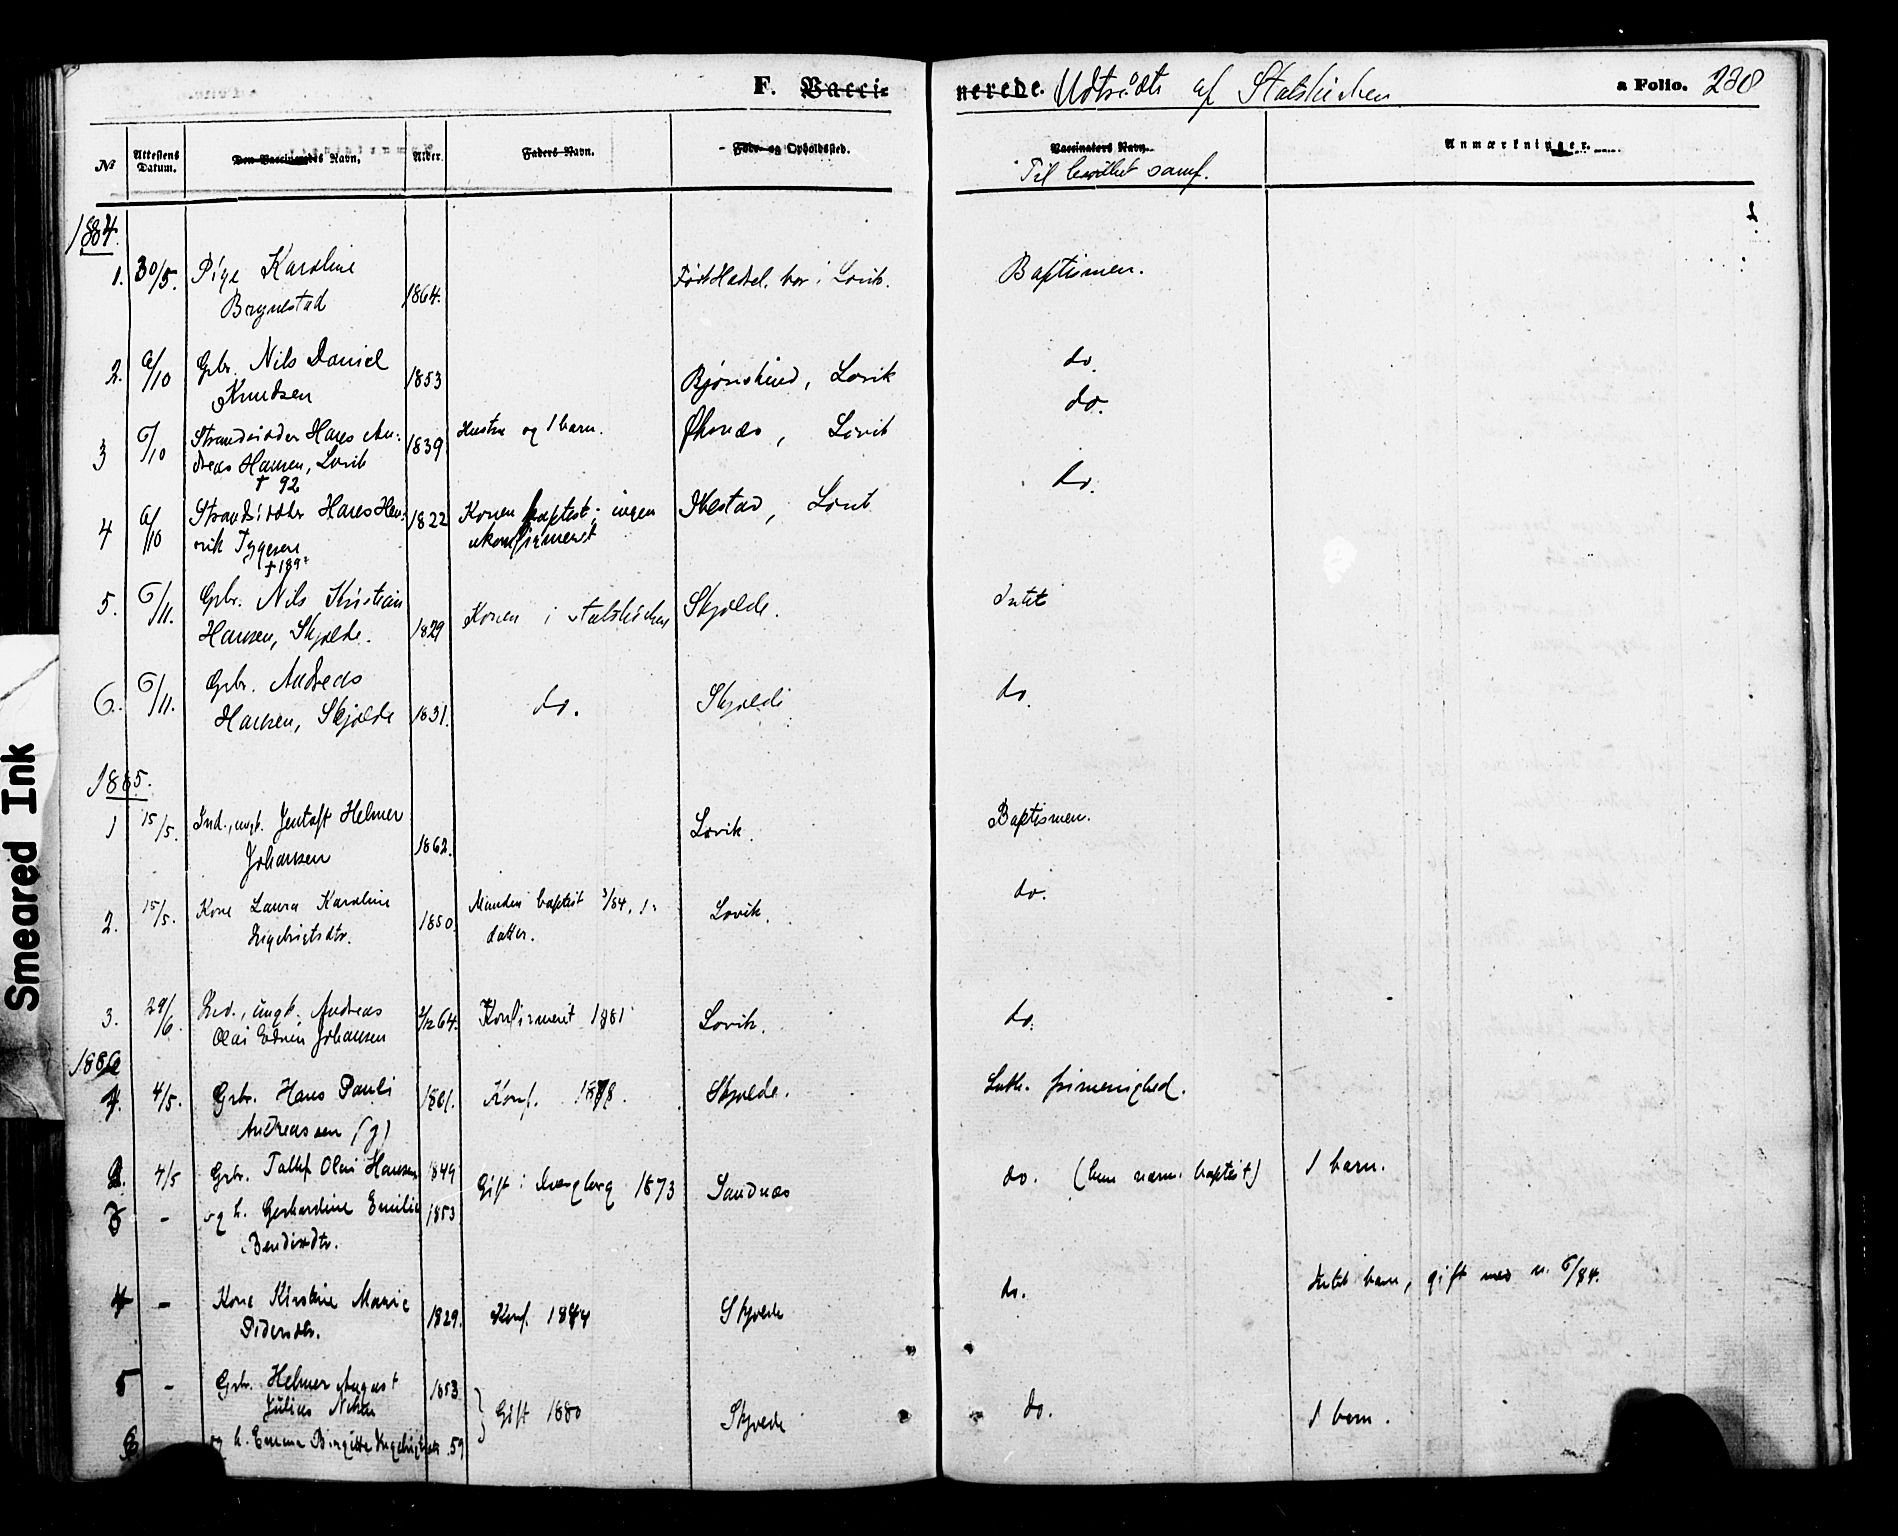 F. Vacci-
nerede. Udtrådte af Statskirken
a Folio. 230
№
Attestens Datum.
Den Vaccineredes Navn.
Alder.
Faders Navn.
Føde- og Opholdssted.
Vaccinators Navn.
Til hvilket samf.
Anmærkninger.
1884.
1. 30/5. Pige Karoline 1864. Født Hadsel, bor i Lovik. Baptismen.
2. 6/10 Gbr. Nils Daniel Knudsen 1853 Lovik do.
3 6/10 Strandsidder Hans An-
dreas Hansen, Lovik 1839 Hustru og 1 barn. Øksnæs, Lovik do.
† 92
4 6/10 Strandsidder Hans Hen-
rik Tygesen 1822 Konen baptist; ingen
ukonfirmeret Lovik do.
5. 6/11. Gbr. Nils Kristian
Hansen, Skjolde. 1829 Konen i statskirken Skjolde. Intet
6. 6/11. Gbr. Andreas
Hansen, Skjolde 1831. do. Skjolde do.
1885.
1 15/5. Ind., ungk. Jentoft Helmer
Johansen 1862. Lovik. Baptismen.
2. 15/5. Kone Laura Karoline
Ingebrigtsdtr. 1850 Manden baptist /84, 1
datter. Lovik. do.
3. 29/6. Ind., ungk. Andreas
Olai Edvin Johansen /12 64. Konfirmeret 1881 Lovik. do.
1886
1. 4/5. Gbr. Hans Pauli
Andreassen (g) 1861. Konf. 1878. Skjolde. Luth. frimenighed.
2. 4/5 Gbr. Tollef Olai Hansen 1849 Gift i Dverberg 1873 Sandnæs do. (hun nærm. baptist) 1 barn.
3 - og h. Gerhardine Emilie 1853
4 - Kone Kirstine Marie
Pedersdtr. 1829. Konf. 1844 Skjolde do. Intet barn, gift med n. 6/84.
5 - Gbr. Helmer August
Julius Nilsen 1853 Gift 1880 Skjolde do. 1 barn.
6 og h. Emma Birgitte 59
Smeared Ink